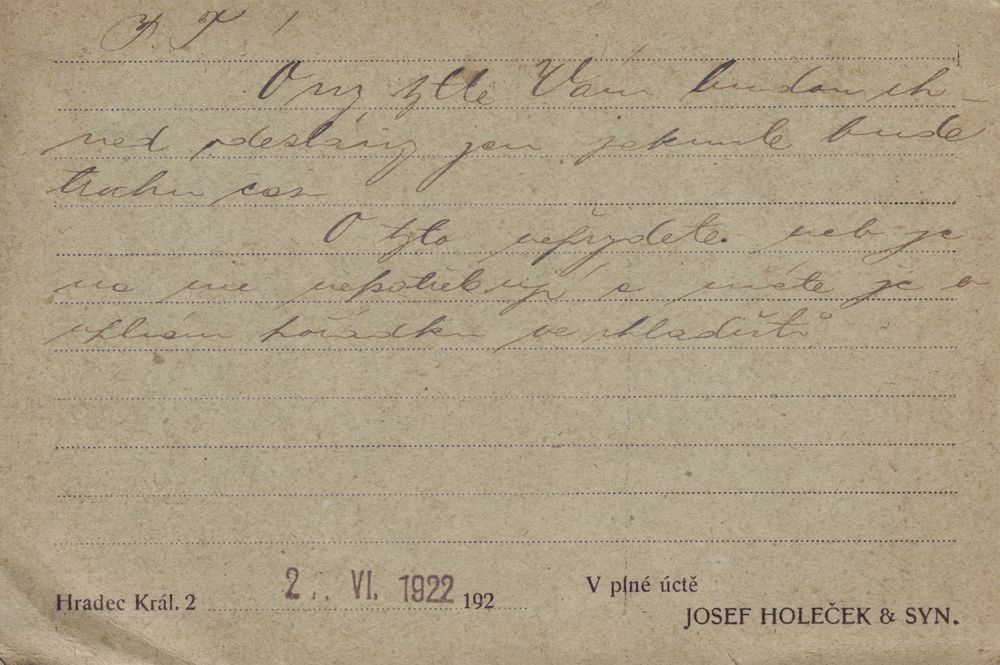 P. T.
Ony tyto Vám budou ih-
ned odeslány jen jakmile bude
trochu čas
O tyto nepřijdete. neb je
na nic nepotřebuji a máte je v
úplném pořádku ve skladišti
Hradec Král. 2 2. VI. 1922 192
V plné úctě
JOSEF HOLEČEK & SYN.